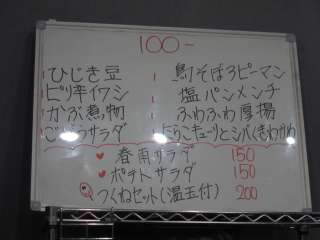 100-
ひじき豆
ピリ辛イワシ
かぶ煮物
サラダ
鶏そぼろピーマン
塩パンメンチ
ふわふわ厚揚
たらこキューリとシバ
春雨サラダ 150
ポテトサラダ 150
つくねセット(温玉付) 200